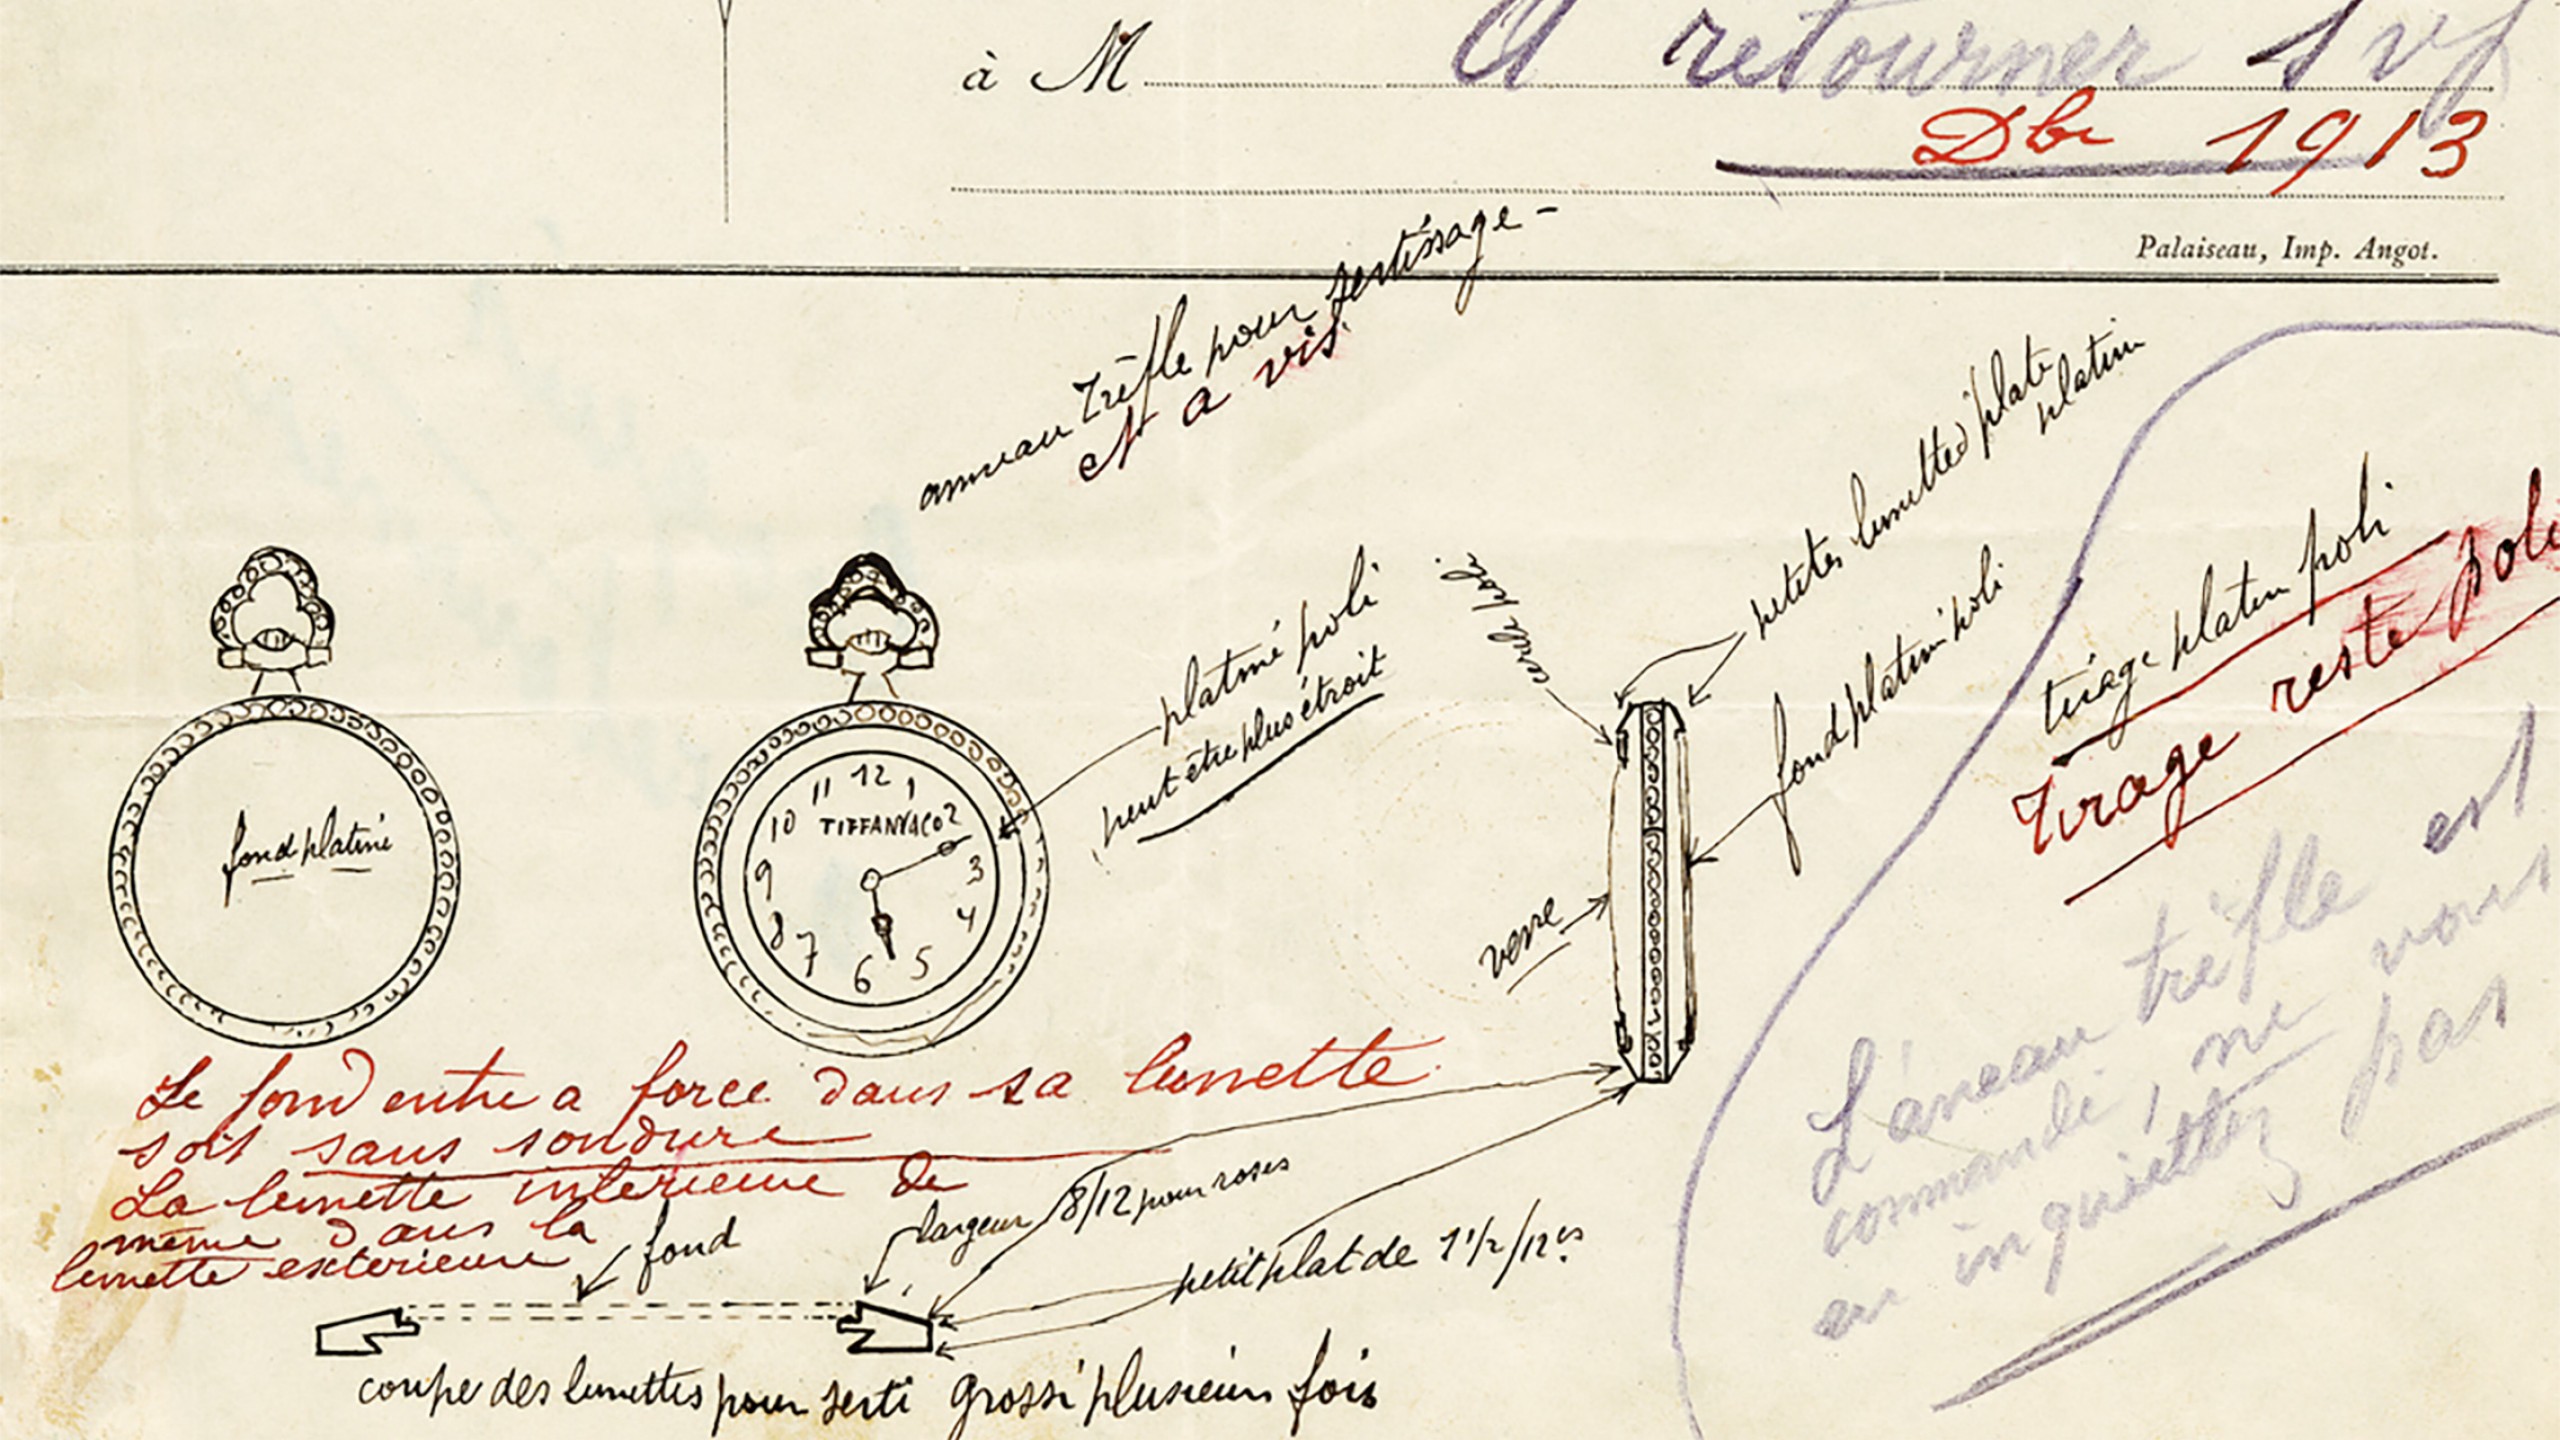 à M
A retourner svp
Dbr 1913
Palaiseau, Imp. Angot.
anneau trèfle pour sertissage -
et a vis
petites lunettes plate
platine
cercle poli
platiné poli
peut être plus étroit
fond platine poli
tirage platine poli
Tirage reste poli
fond platiné
12
11 1
10 TIFFANY & CO 2
9 3
8 4
7 5
6
verre
L'aneau trèfle est
commandé, ne vous
en inquiettez pas
Le fond entre a force dans sa lunette
soit sans soudure
La lunette interieure de
même dans la
lunette exterieure
fond
largeur 8/12 pour roses
petit plat de 1 1/2/12es
coupe des lunettes pour serti grossi plusieurs fois